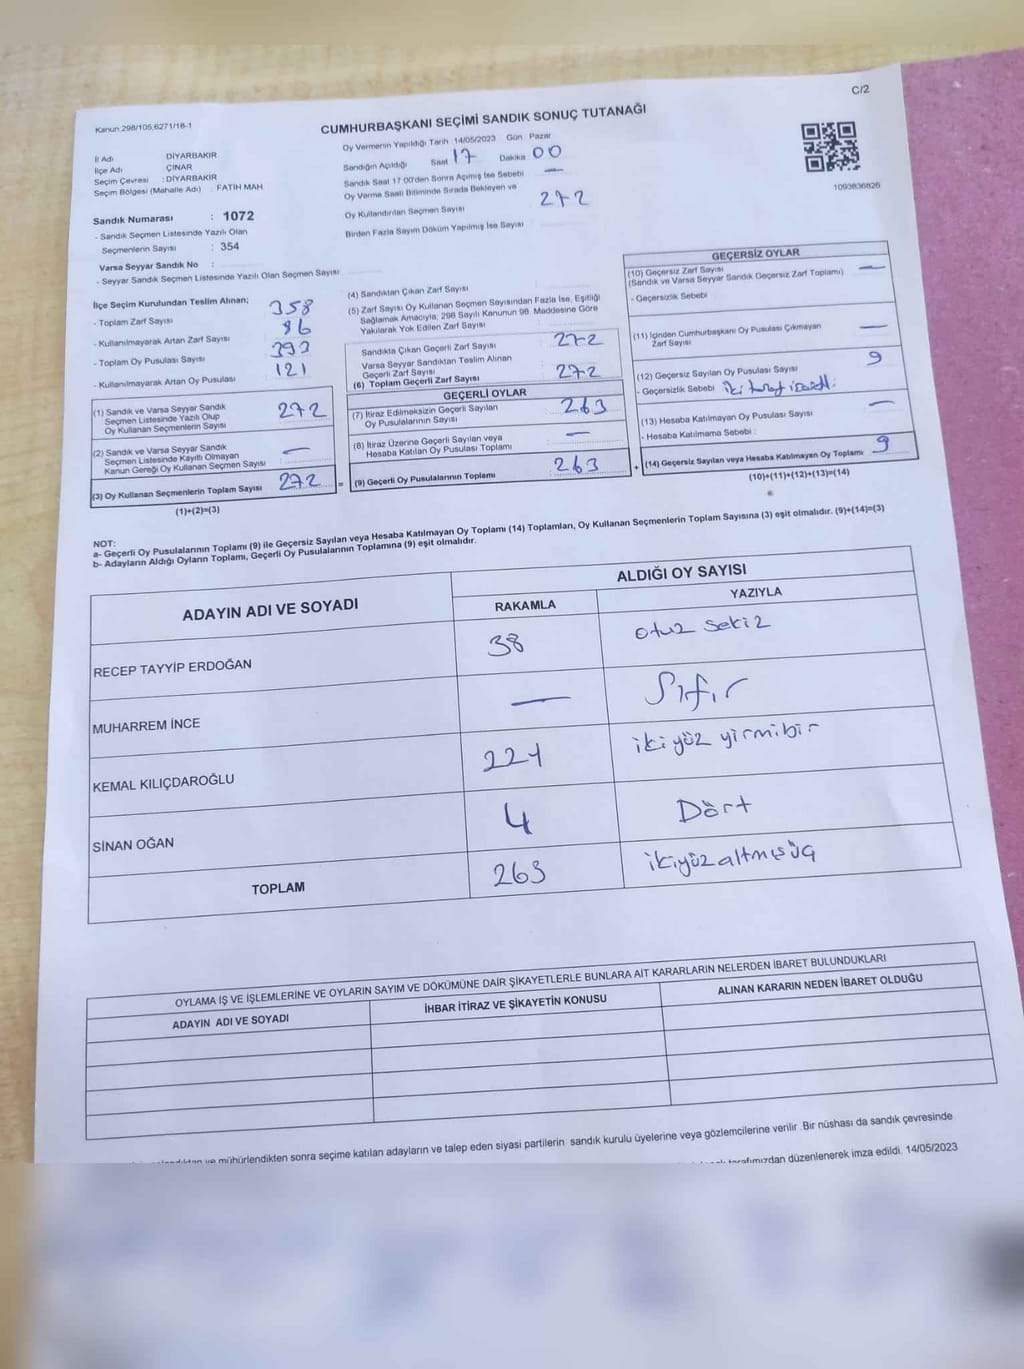 C/2
Kanun:298/105,6271/18-1
CUMHURBAŞKANI SEÇİMİ SANDIK SONUÇ TUTANAĞI
İl Adı DİYARBAKIR
İlçe Adı ÇINAR
Seçim Çevresi : DİYARBAKIR
Seçim Bölgesi (Mahalle Adı) : FATİH MAH
Sandık Numarası : 1072
- Sandık Seçmen Listesinde Yazılı Olan
Seçmenlerin Sayısı : 354
Varsa Seyyar Sandık No :
- Seyyar Sandık Seçmen Listesinde Yazılı Olan Seçmen Sayısı
Oy Vermenin Yapıldığı Tarih 14/05/2023 Gün Pazar
Sandığın Açıldığı Saat 17 Dakika 00
Sandık Saat 17:00'den Sonra Açılmış İse Sebebi —
Oy Verme Saati Bitiminde Sırada Bekleyen ve
Oy Kullandırılan Seçmen Sayısı 272
Birden Fazla Sayım Döküm Yapılmış İse Sayısı
1093636626
İlçe Seçim Kurulundan Teslim Alınan;
- Toplam Zarf Sayısı 358
- Kullanılmayarak Artan Zarf Sayısı 86
- Toplam Oy Pusulası Sayısı 393
- Kullanılmayarak Artan Oy Pusulası 121
(1) Sandık ve Varsa Seyyar Sandık
Seçmen Listesinde Yazılı Olup
Oy Kullanan Seçmenlerin Sayısı 272
(2) Sandık ve Varsa Seyyar Sandık
Seçmen Listesinde Kayıtlı Olmayan
Kanun Gereği Oy Kullanan Seçmen Sayısı —
(3) Oy Kullanan Seçmenlerin Toplam Sayısı 272
(1)+(2)=(3)
(4) Sandıktan Çıkan Zarf Sayısı
(5) Zarf Sayısı Oy Kullanan Seçmen Sayısından Fazla İse, Eşitliği
Sağlamak Amacıyla, 298 Sayılı Kanunun 98. Maddesine Göre
Yakılarak Yok Edilen Zarf Sayısı
Sandıkta Çıkan Geçerli Zarf Sayısı 272
Varsa Seyyar Sandıktan Teslim Alınan
Geçerli Zarf Sayısı
(6) Toplam Geçerli Zarf Sayısı 272
GEÇERLİ OYLAR
(7) İtiraz Edilmeksizin Geçerli Sayılan
Oy Pusulalarının Sayısı 263
(8) İtiraz Üzerine Geçerli Sayılan veya
Hesaba Katılan Oy Pusulası Toplamı —
= (9) Geçerli Oy Pusulalarının Toplamı 263
GEÇERSİZ OYLAR
(10) Geçersiz Zarf Sayısı —
(Sandık ve Varsa Seyyar Sandık Geçersiz Zarf Toplamı)
- Geçersizlik Sebebi
(11) İçinden Cumhurbaşkanı Oy Pusulası Çıkmayan
Zarf Sayısı —
(12) Geçersiz Sayılan Oy Pusulası Sayısı 9
- Geçersizlik Sebebi iki taraf
(13) Hesaba Katılmayan Oy Pusulası Sayısı —
- Hesaba Katılmama Sebebi :
+ (14) Geçersiz Sayılan veya Hesaba Katılmayan Oy Toplamı 9
(10)+(11)+(12)+(13)=(14)
NOT:
a- Geçerli Oy Pusulalarının Toplamı (9) ile Geçersiz Sayılan veya Hesaba Katılmayan Oy Toplamı (14) Toplamları, Oy Kullanan Seçmenlerin Toplam Sayısına (3) eşit olmalıdır. (9)+(14)=(3)
b- Adayların Aldığı Oyların Toplamı, Geçerli Oy Pusulalarının Toplamına (9) eşit olmalıdır.
ADAYIN ADI VE SOYADI ALDIĞI OY SAYISI
RAKAMLA YAZIYLA
RECEP TAYYİP ERDOĞAN 38 otuz sekiz
MUHARREM İNCE — Sıfır
KEMAL KILIÇDAROĞLU 221 ikiyüz yirmibir
SİNAN OĞAN 4 Dört
TOPLAM 263 ikiyüzaltmışüç
OYLAMA İŞ VE İŞLEMLERİNE VE OYLARIN SAYIM VE DÖKÜMÜNE DAİR ŞİKAYETLERLE BUNLARA AİT KARARLARIN NELERDEN İBARET BULUNDUKLARI
ADAYIN ADI VE SOYADI İHBAR İTİRAZ VE ŞİKAYETİN KONUSU ALINAN KARARIN NEDEN İBARET OLDUĞU
ve mühürlendikten sonra seçime katılan adayların ve talep eden siyasi partilerin sandık kurulu üyelerine veya gözlemcilerine verilir .Bir nüshası da sandık çevresinde
tarafımızdan düzenlenerek imza edildi. 14/05/2023